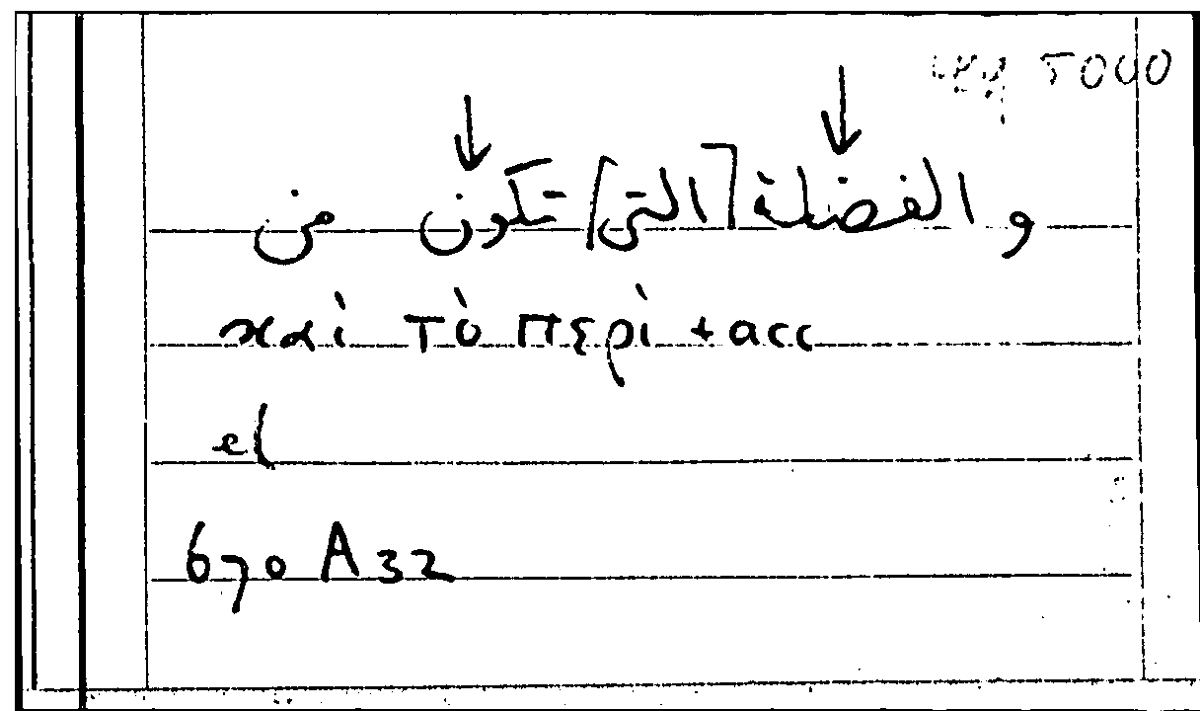 5000
↓ ↓
و الفضلة [التي] تكون من
καὶ τὸ περὶ + acc
el
670 A 32